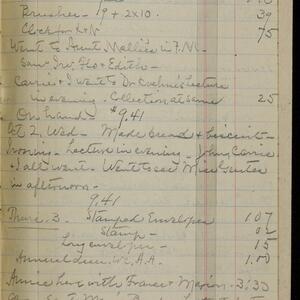 Brushes - 19 + 2x10. 39
Clock for K + N 75
Went to Aunt Mollies in P.M.
Saw Irv, Flo + Edith -
Carrie + I went to Dr Cochrin's Lecture
in evening. Collection at same 25
On hand $9.41
Oct 2, Wed - Made bread + biscuit -
Ironing - Lecture in evening - John, Carrie
+ I all went. Went to see Miss
in afternoon -
9.41
Thurs. 3. Stamped Envelopes 107
Stamp - 02
Lg envelopes - 15
Annual dues W. A. A. 1.00
Annie here with Frances Marion - 3:30